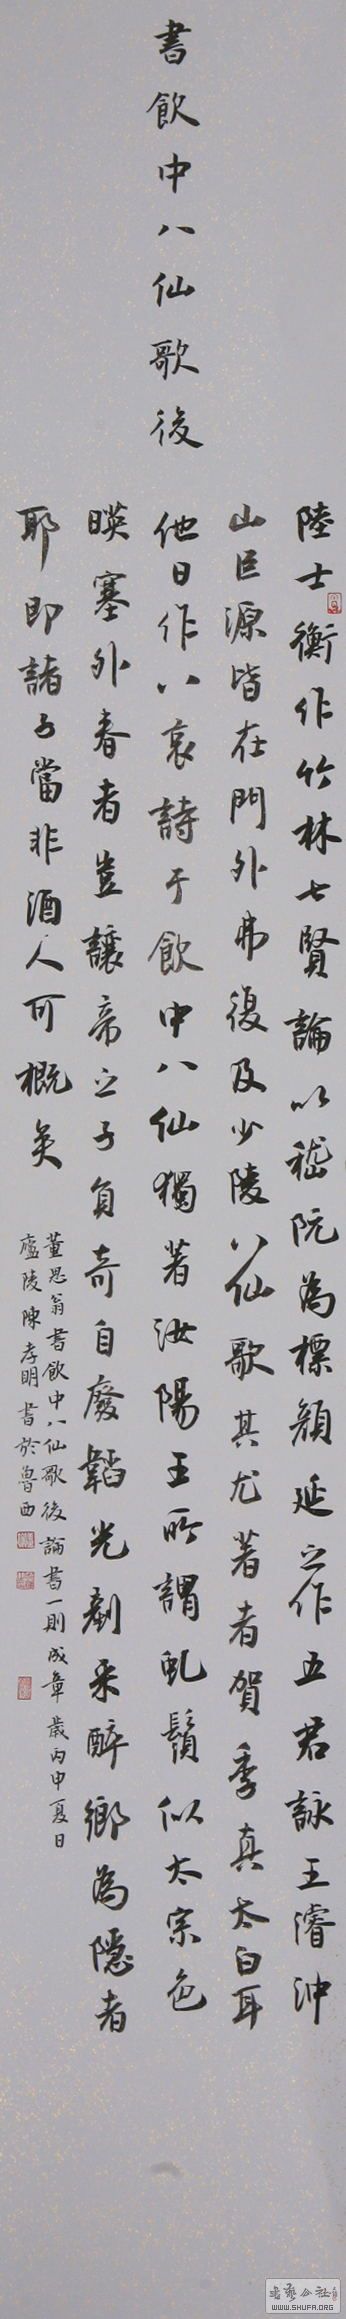 書飲中八仙歌後
陸士衡作竹林七賢論以嵇阮為標顏延之作五君詠王濬沖
山巨源皆在門外弗復及少陵八仙歌其尤著者賀季真太白耳
他日作八哀詩于飲中八仙獨著汝陽王所謂虬鬚似太宗色
暎塞外春者豈讓帝之子負奇自廢韜光剷采醉鄉為隱者
耶即諸子當非酒人可概矣
董思翁書飲中八仙歌後論書一則成章歲丙申夏日
廬陵陳孝明書於魯西
WWW.SHUFA.ORG